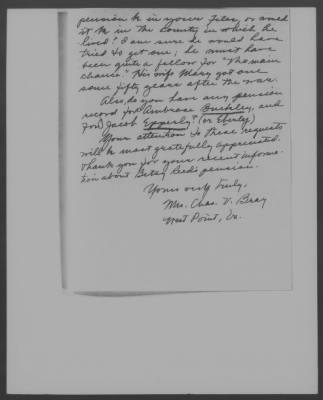 pension be in your files, or would
it be in the County in which he
lived? I am sure he would have
tried to get one; he must have
been quite a fellow for "the main
chance." His wife Mary got one
some fifty years after the war.
Also, do you have any pension
record for Ambrose Buckley, and
for Jacob Epperly? (or Eberly)
Your attention to these requests
will be most gratefully appreciated.
Thank you for your recent informa-
tion about Betsy Reed's pension.
Yours very truly,
Mrs. Chas. V. Bray
West Point, Va.